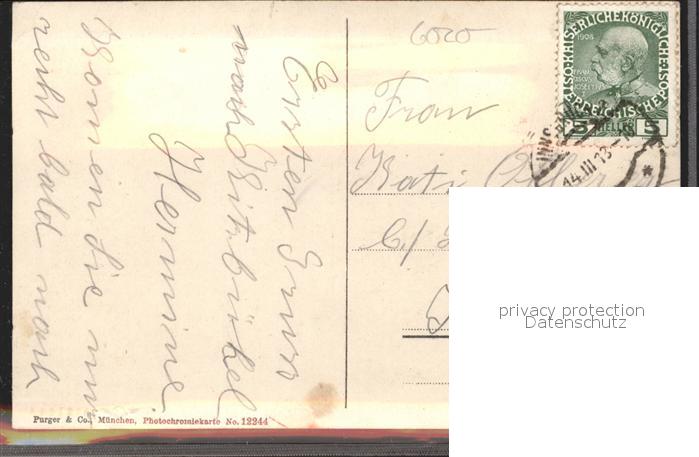 6020
KAISERLICHE KÖNIGLICHE
ÖSTERREICHISCHE POST
1908
FRANCISCVS
JOSEPH I
5 HELLER 5
INNSBRUCK
14 III 13
*
Frau
Kati
Ersten Gruss
nach Kitzbühel
Hermine.
Kommen Sie nur
recht bald nach
privacy protection
Datenschutz
Purger & Co., München, Photochromiekarte No. 12244